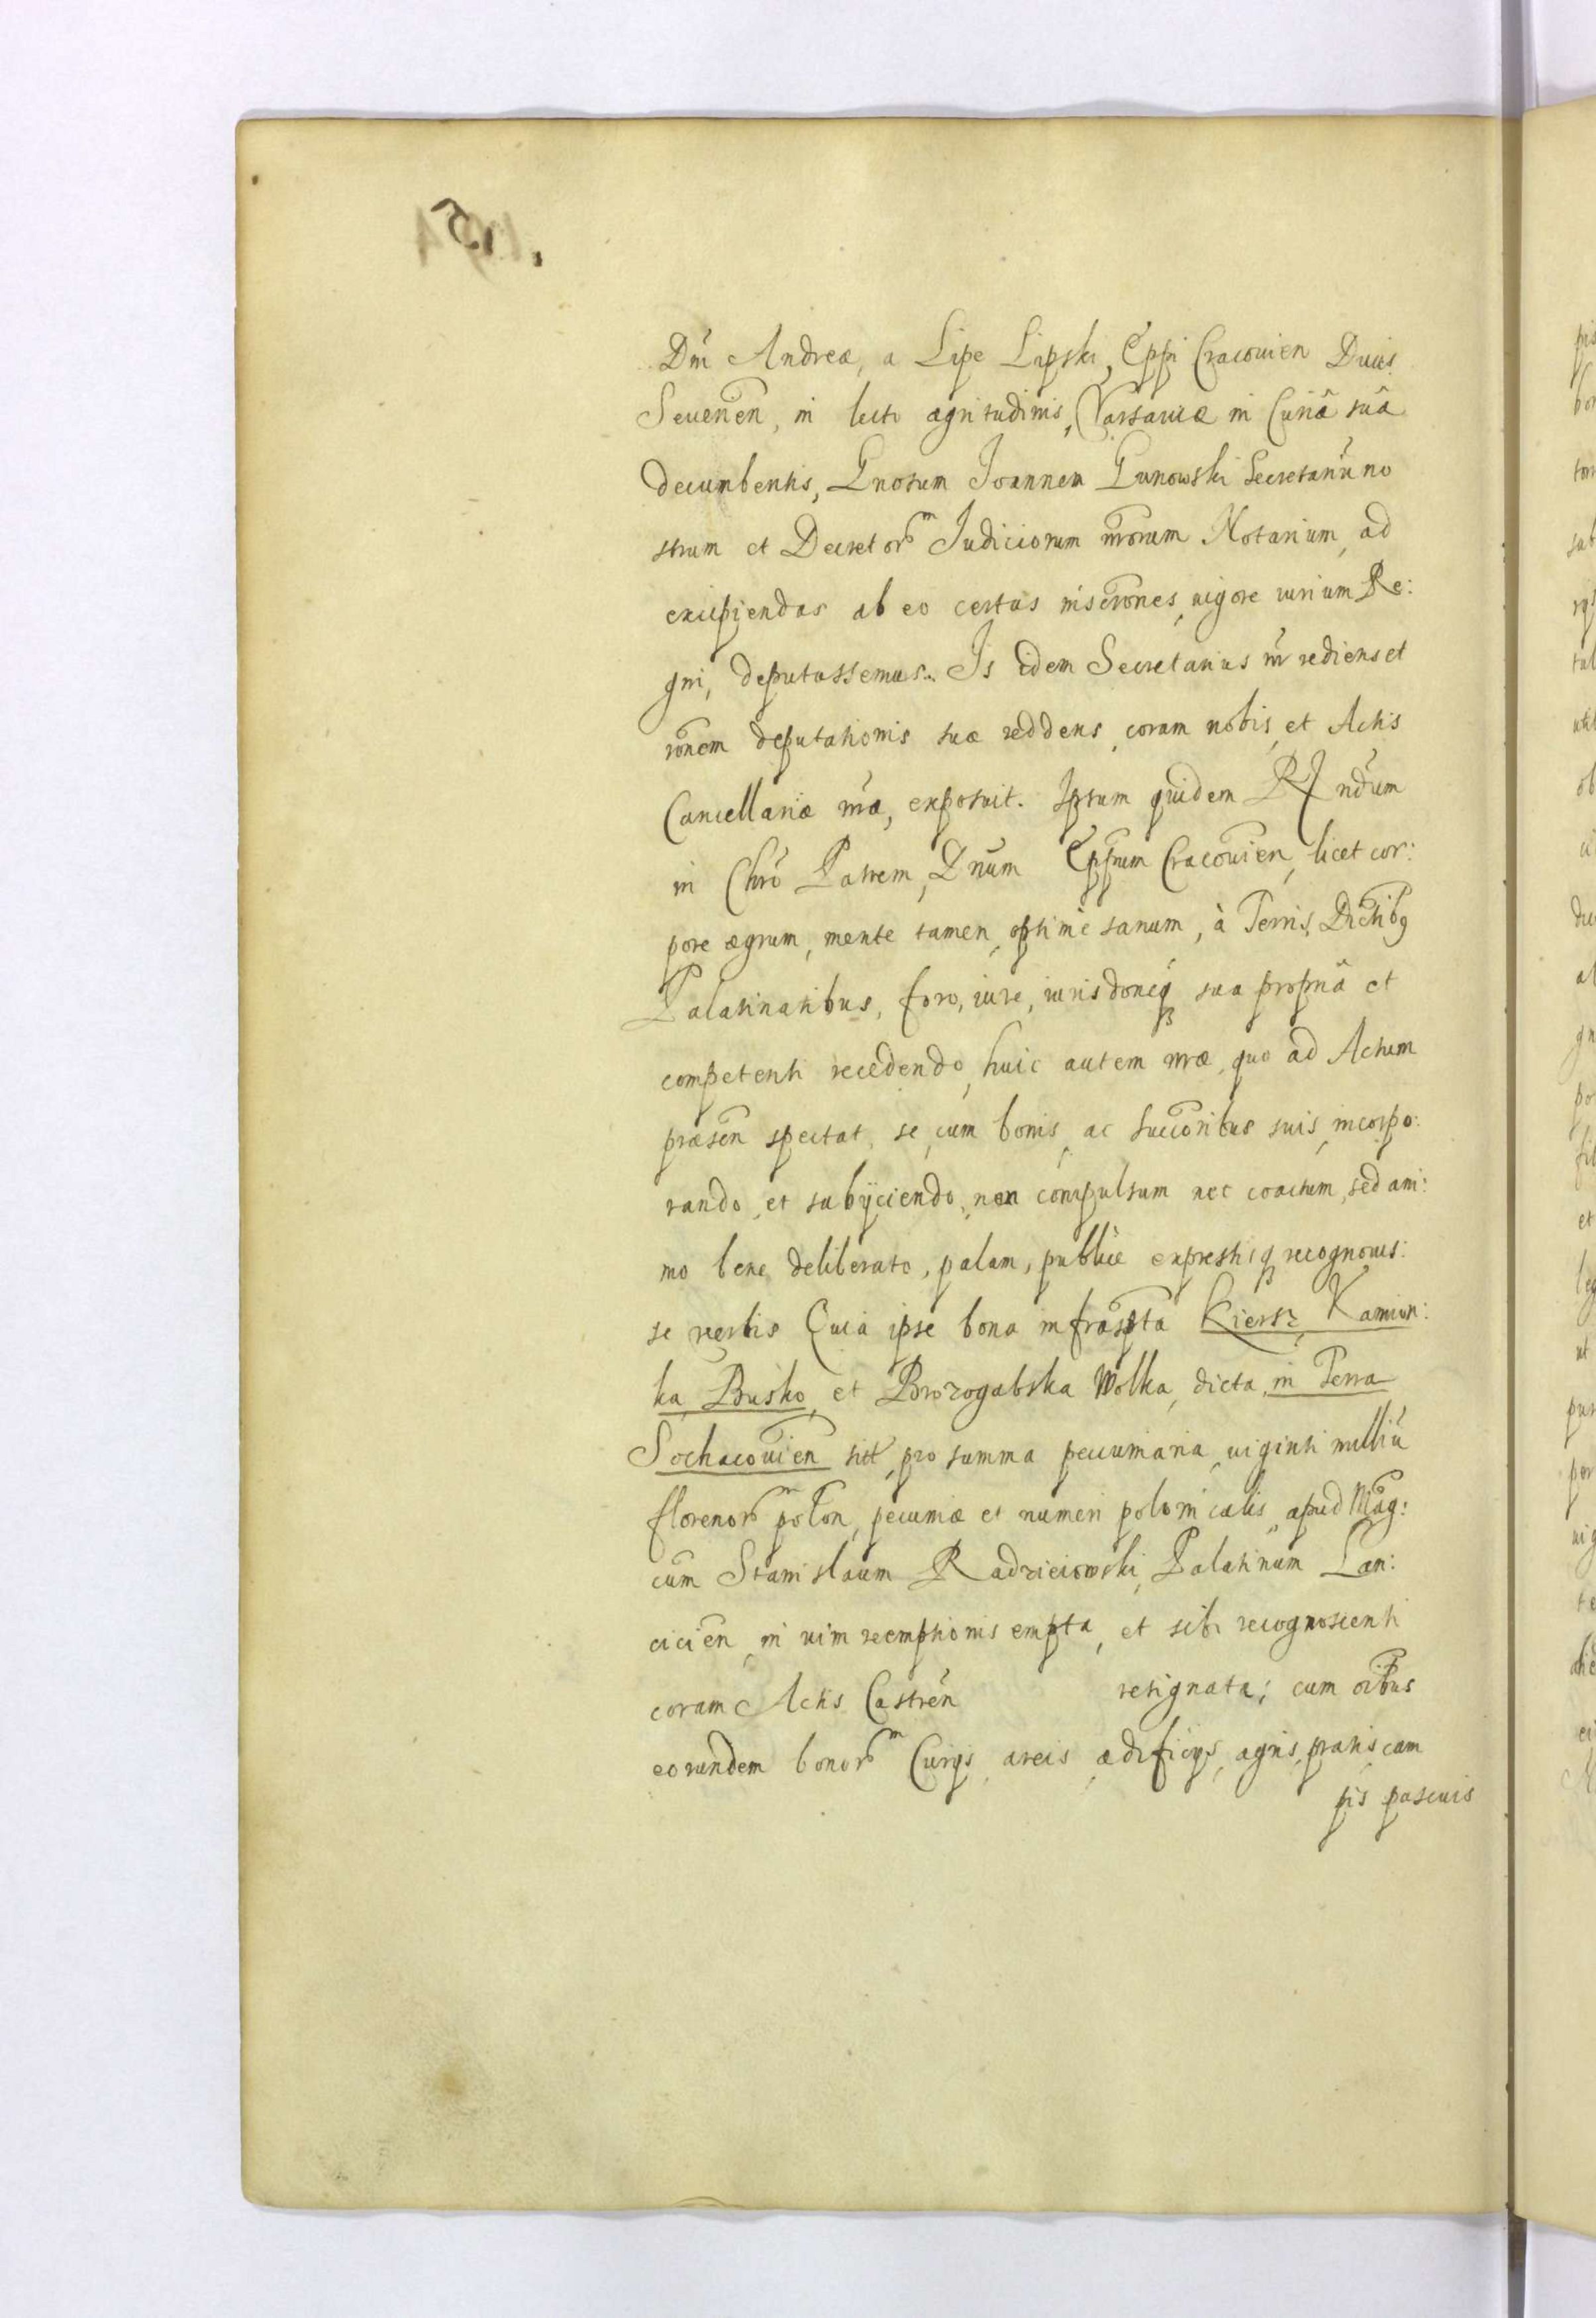 Dni Andreæ, a Lipe Lipski, Eppi Cracouien Ducis
Seuerien, in lecto ægritudinis, Varsauiæ in Curiâ suâ
decumbentis, Gnosum Joannem Gunowski Secretariũ no
strum et Decretorm Judiciorum nrorum Notarium, ad
excipiendas ab eo certas inscrones, uigore iurium Re:
gni, deputassemus. Is idem Secretarius nr rediens et
ronem deputationis suæ reddens, coram nobis, et Actis
Cancellariæ nræ, exposuit. Ipsum quidem RJndum
in Chro Patrem, Dnum Eppum Cracouien, licet cor:
pore ægrum, mente tamen, optimè sanum, à Terris, Dictibq
Palatinatibus, foro, iure, iurisdoneq sua propriâ et
competenti recedendo, huic autem nræ, quo ad Actum
præsen spectat, se, cum bonis, ac succoribus suis, incorpo:
rando, et subijciendo, non compulsum nec coactum, sed ani:
mo bene deliberato, palam, publice expressisq recognouis:
se uerbis Quia ipse bona infraspta Kiersz, Kamion:
ka, Busko, et Brozogabska Wolka, dicta, in Terra
Sochacouien sitt, pro summa pecuniaria, uiginti milliũ
florenorm polon, pecuniæ et numeri polonicalis, apud Mag:
cum Stanislaum Radzieiowski, Palatinum Lan:
cicien, in uim reemptionis empta, et sibi recognoscenti
coram Actis Castren resignata; cum oibus
eorundem bonorm Curijs, areis, ædificijs, agris, pratis, cam
pis pascuis